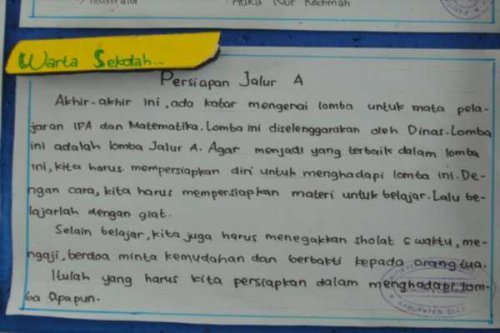 Atika Nur Rochmah
Warta Sekolah...
Persiapan Jalur A
Akhir-akhir ini, ada kabar mengenai lomba untuk mata pela-
jaran IPA dan Matematika. Lomba ini diselenggarakan oleh Dinas. Lomba
ini adalah lomba Jalur A. Agar menjadi yang terbaik dalam lomba
ini, kita harus mempersiapkan diri untuk menghadapi lomba ini. De-
ngan cara, kita harus mempersiapkan materi untuk belajar. Lalu be-
lajarlah dengan giat.
Selain belajar, kita juga harus menegakkan sholat 5 waktu, me-
ngaji, berdoa minta kemudahan dan berbakti kepada orang tua.
Itulah yang harus kita persiapkan dalam menghadapi lom-
ba apapun.